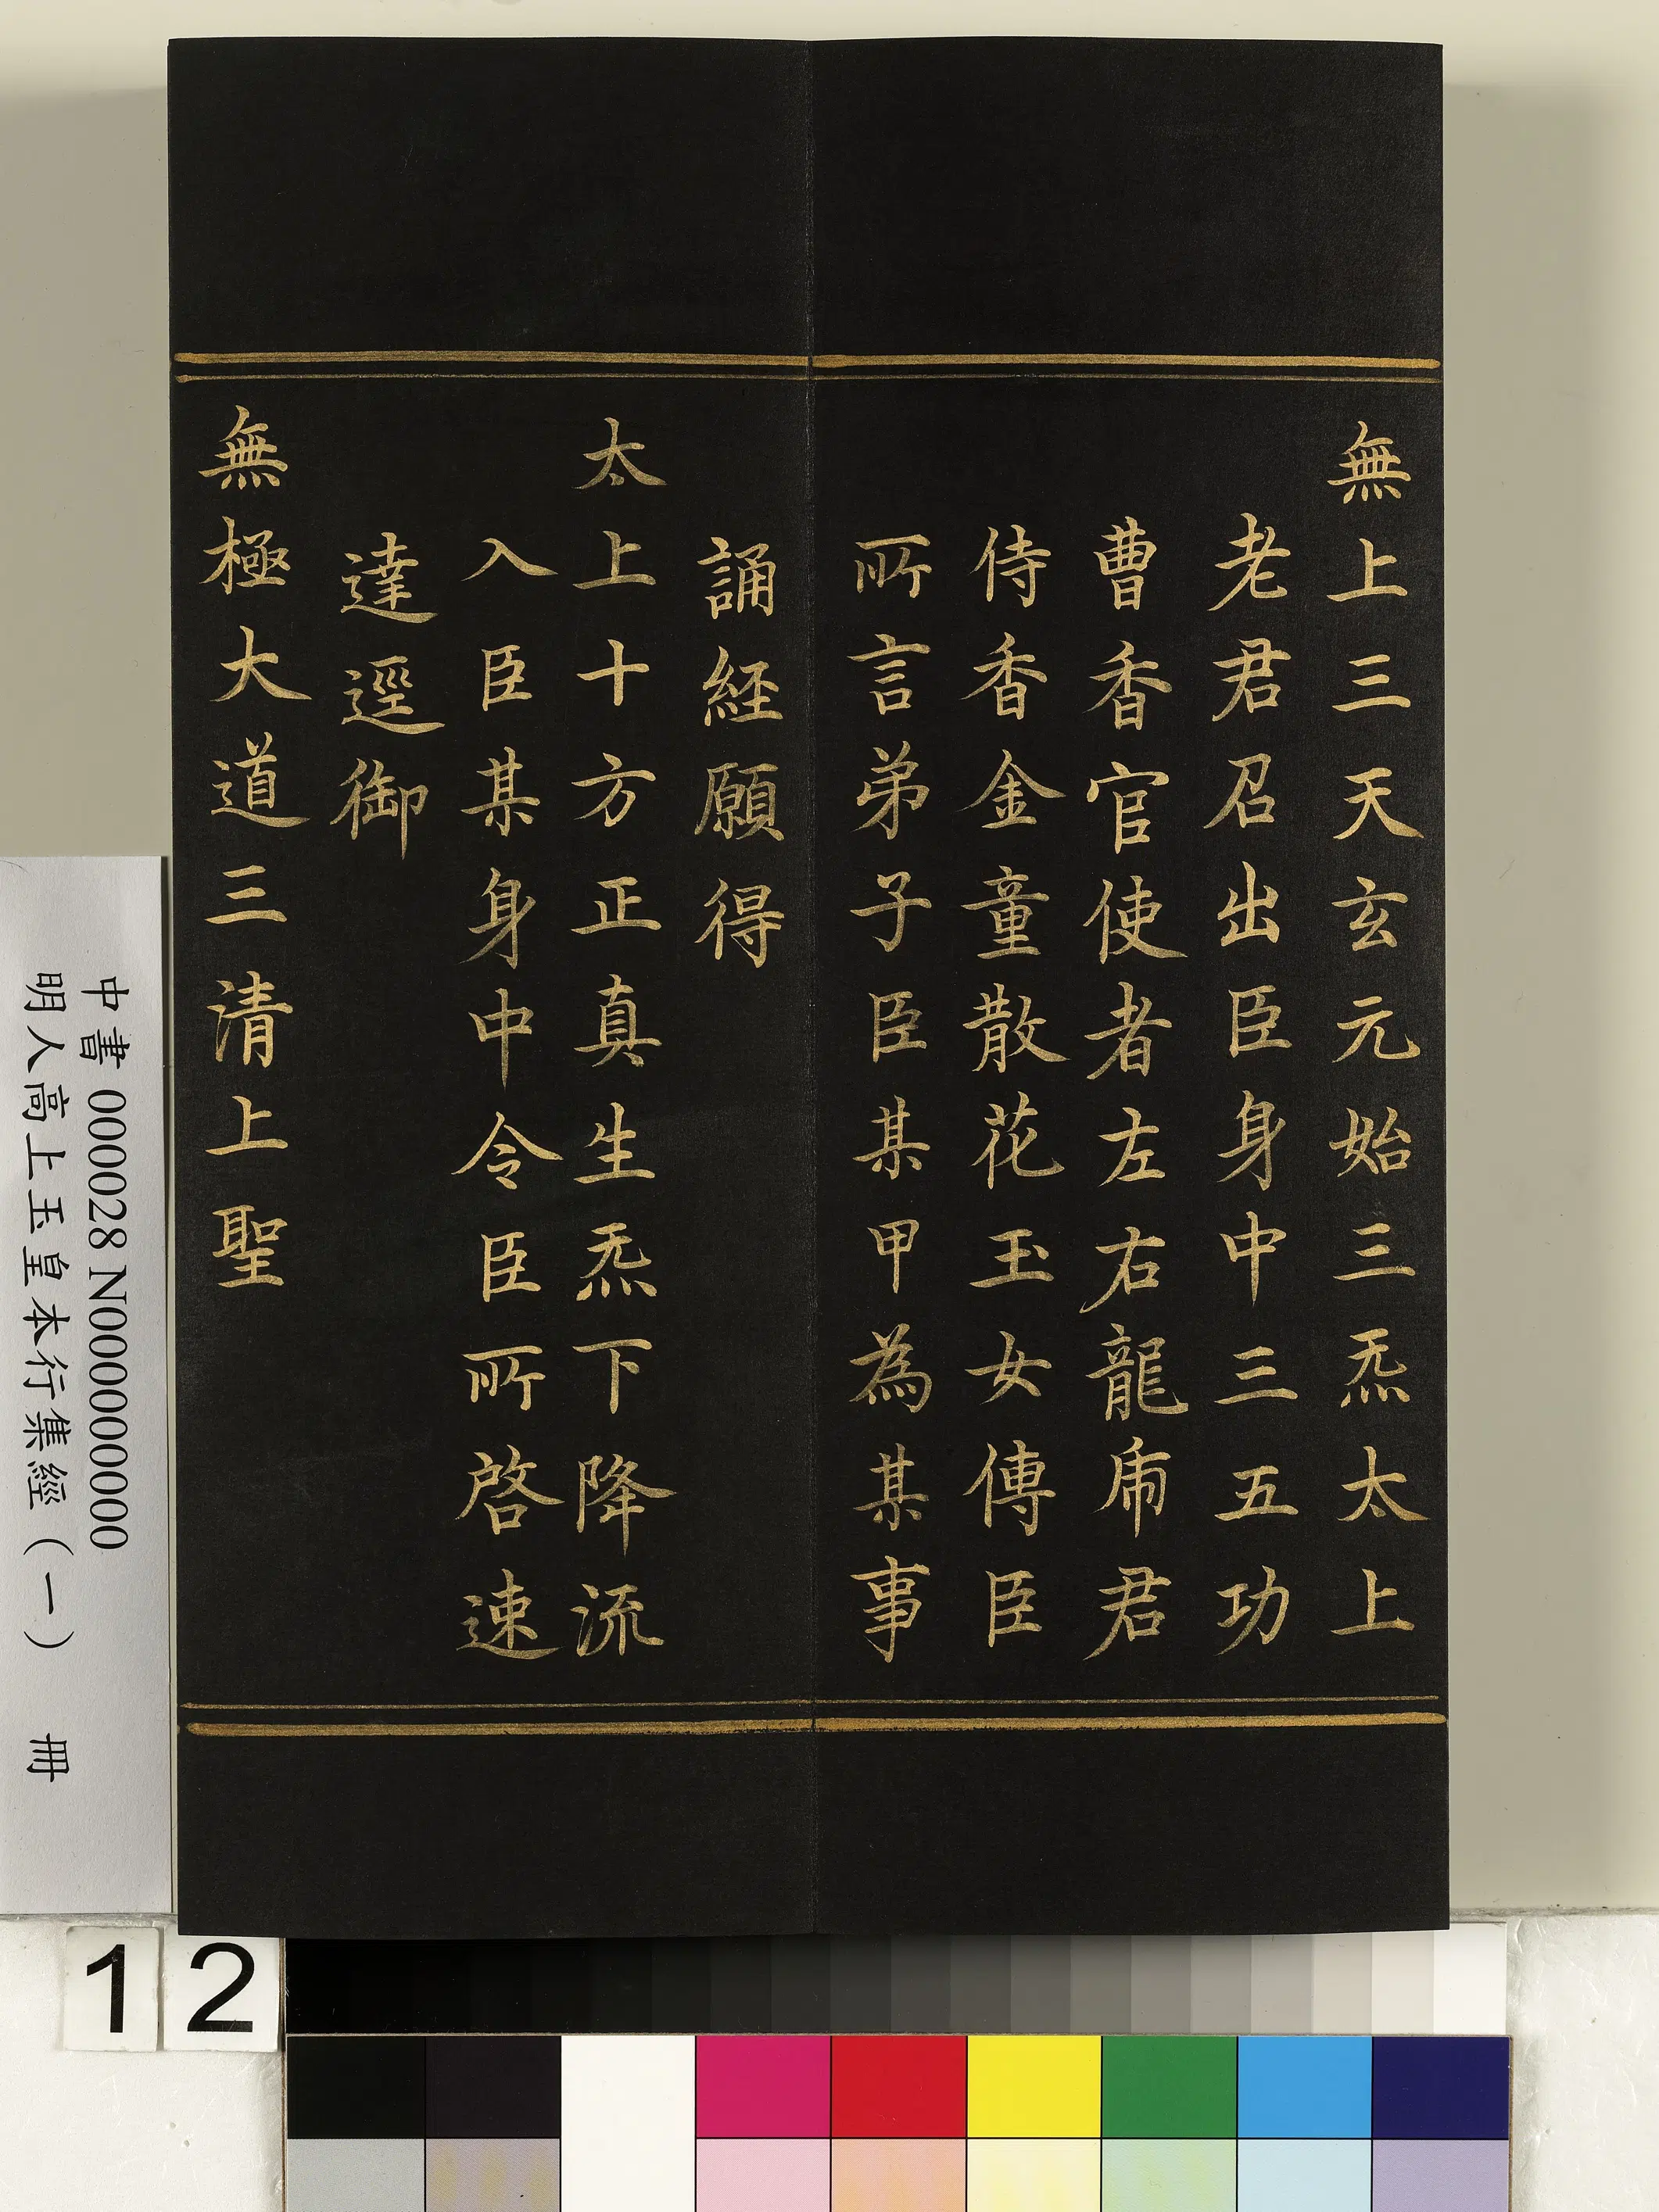 無上三天玄元始三炁太上
老君召出臣身中三五功
曹香官使者左右龍乕君
侍香金童散花玉女傳臣
所言弟子臣某甲為某事
誦經願得
太上十方正真生炁下降流
入臣某身中令臣所啓速
達逕御
無極大道三清上聖
中書 000028 N000000000
明人高上玉皇本行集經（一） 冊
12